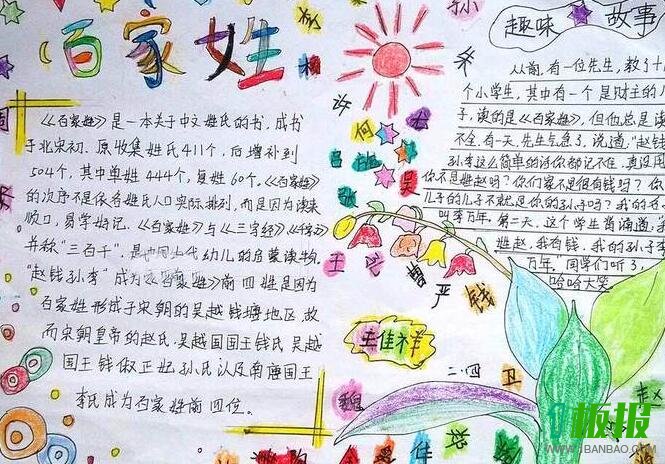 百家姓
《百家姓》是一本关于中文姓氏的书,成书
于北宋初.原收集姓氏411个,后增补到
504个,其中单姓444个,复姓60个。《百家姓》
的次序不是依各姓氏人口实际排列,而是因为读来
顺口,易学好记.《百家姓》与《三字经》《千字文》
并称"三百千",是中国古代幼儿的启蒙读物.
"赵钱孙李"成为《百家姓》前四姓是因为
百家姓形成于宋朝的吴越钱塘地区,故
而宋朝皇帝的赵氏、吴越国国王钱氏、吴越
国王钱俶正妃孙氏以及南唐国王
李氏成为百家姓前四位。
趣味故事
从前,有一位先生,教了十几
个小学生,其中有一个是财主的儿
子,读的是《百家姓》,但他总是读
不全.有一天,先生气急了,说道,"赵钱
孙李这么简单的话你都记不住,真没用
你不是姓赵吗?你们家不是很有钱吗?你
儿子的儿子不就是你的孙子吗?我的
叫李万年。第二天,这个学生背诵道,我
姓赵,我有钱,我的孙子李
万年."同学们听了,
哈哈大笑
朱
许
何
吕
张
吴
王
曹
严
钱
王佳祥
二.四
卫
魏
板报
WWW.1BANBAO.COM